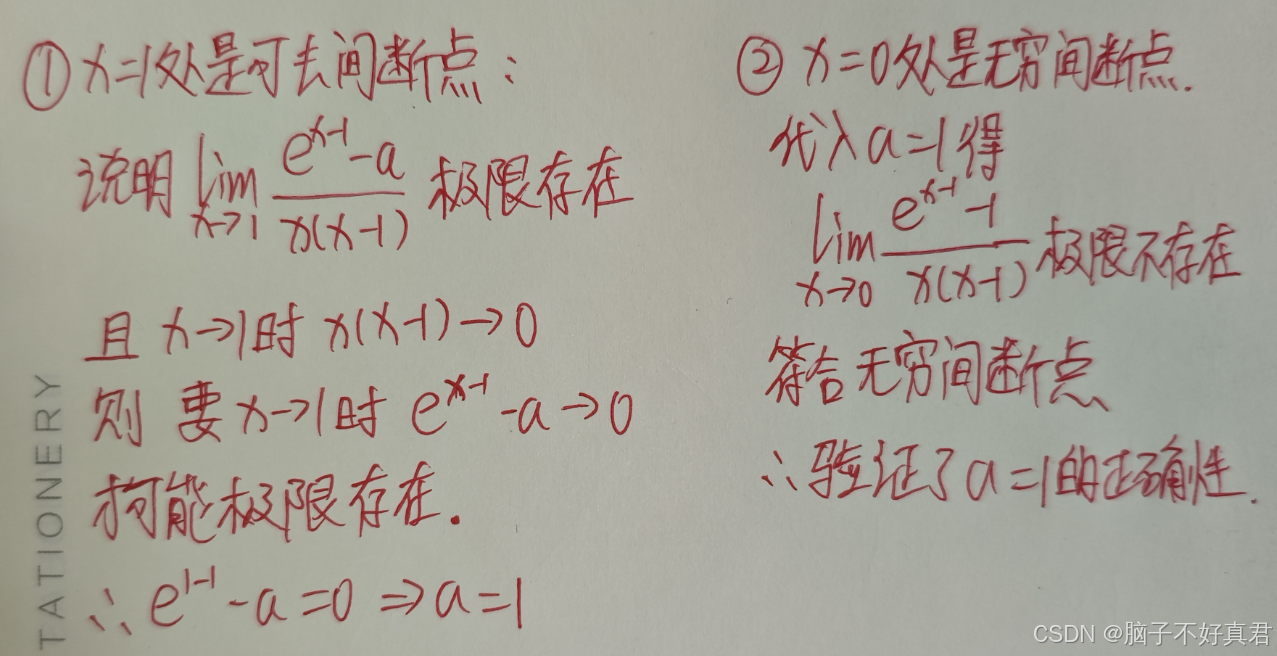 ① x=1处是可去间断点：
说明 lim x→1 (e^{x-1}-a)/(x(x-1)) 极限存在
且 x→1时 x(x-1)→0
则 要x→1时 e^{x-1}-a→0
才可能极限存在.
∴ e^{1-1}-a=0 ⇒ a=1
② x=0处是无穷间断点.
代入a=1得
lim x→0 (e^{x-1}-1)/(x(x-1)) 极限不存在
符合无穷间断点
∴验证了a=1的正确性.
TATIONERY
CSDN @脑子不好真君